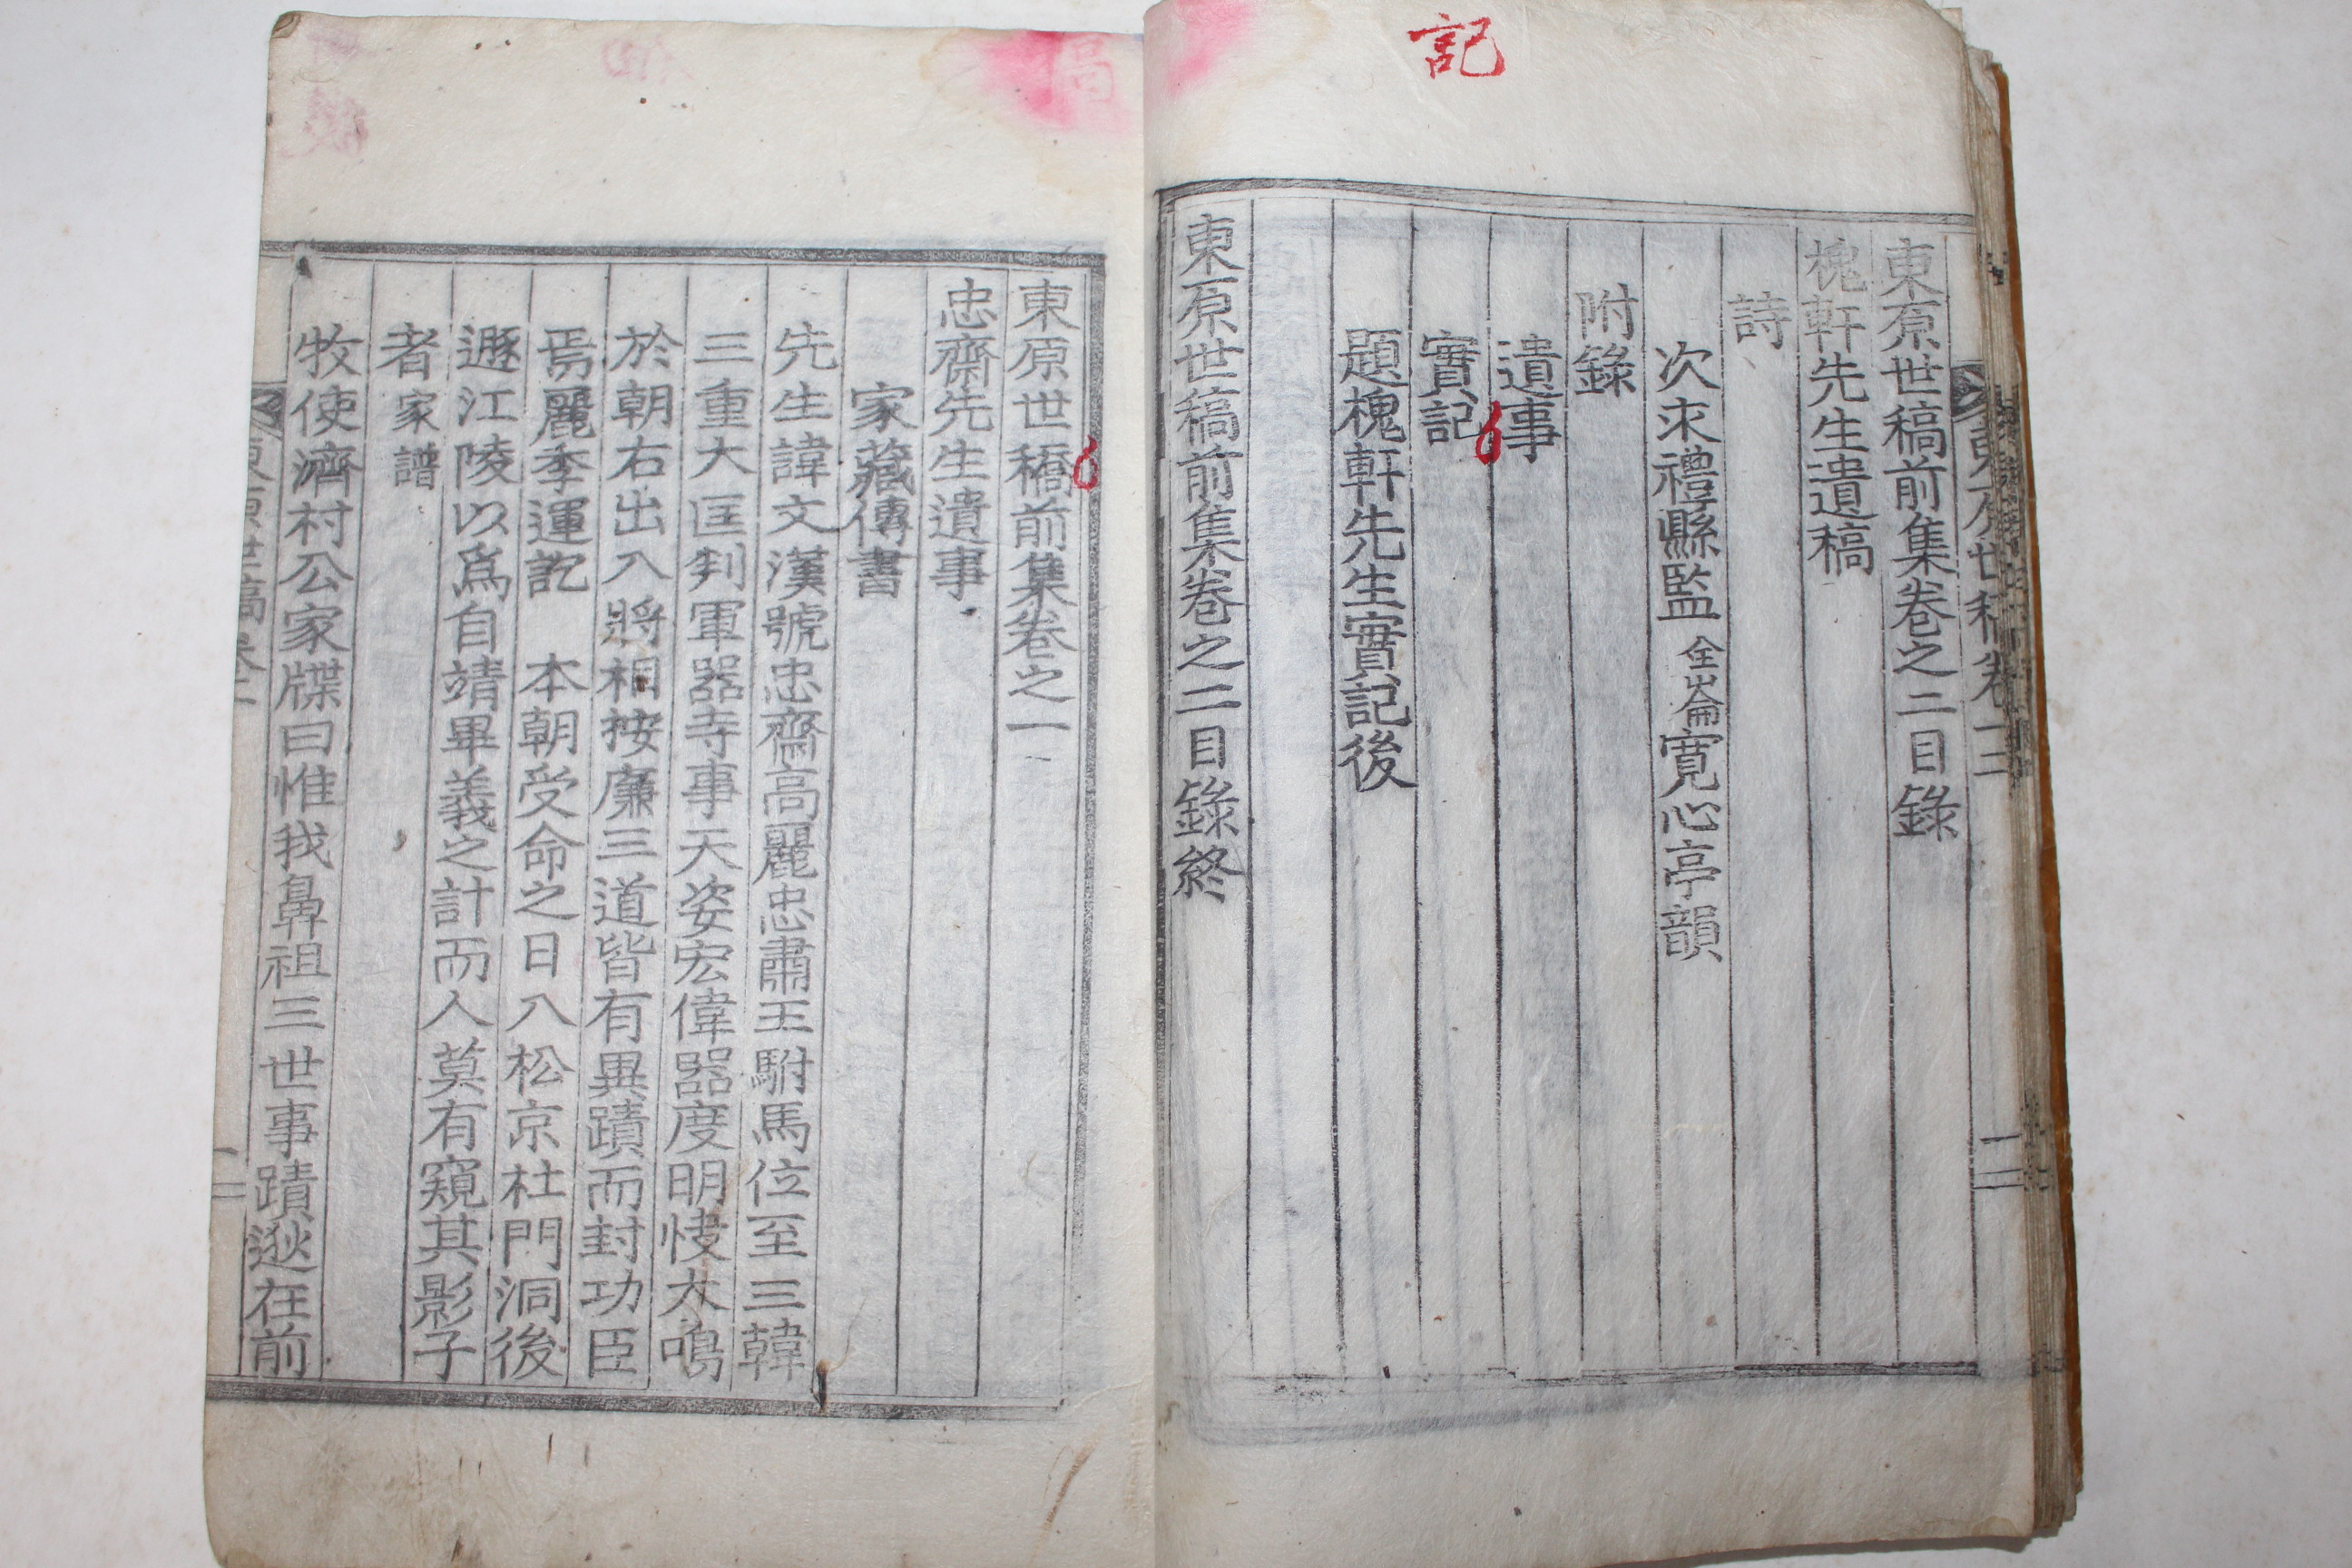 記
東原世稿前集卷之二目錄
槐軒先生遺稿
詩
次求禮縣監全崙寬心亭韻
附錄
遺事
實記
題槐軒先生實記後
東原世稿前集卷之二目錄終
東原世稿前集卷之一
忠齋先生遺事
家藏傳書
先生諱文漢號忠齋高麗忠肅王駙馬位至三韓
三重大匡判軍器寺事天姿宏偉器度明悛大鳴
於朝右出入將相按廉三道皆有異蹟而封功臣
焉麗季運訖 本朝受命之日入松京杜門洞後
遯江陵以爲自靖畢義之計而人莫有窺其影子
者家譜
牧使濟村公家牒曰惟我鼻祖三世事蹟逖在前